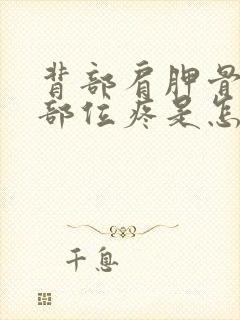 背部肩胛骨
部位疼是怎
千息